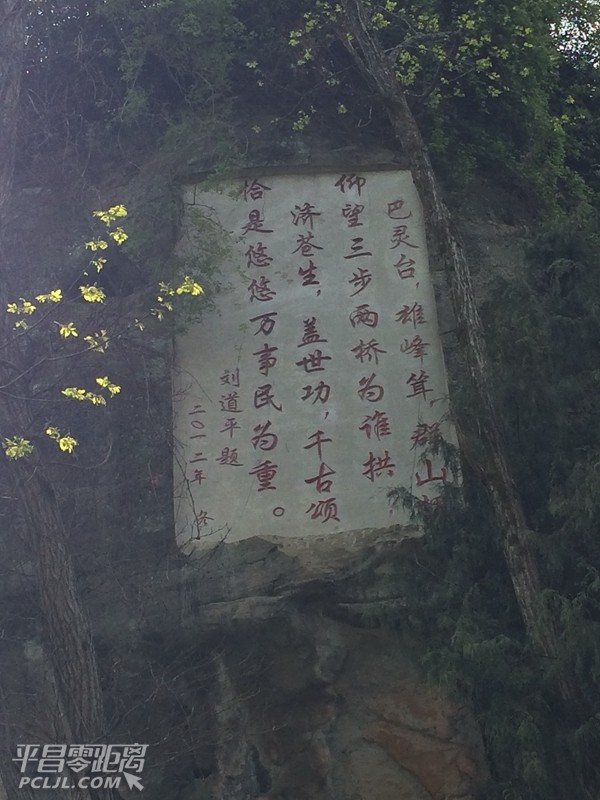 巴灵台，雄峰耸，群山
仰望三步两桥为谁拱
济苍生，盖世功，千古颂
恰是悠悠万事民为重。
刘道平题
二〇一二年 冬
平昌零距离
PCLJL.COM